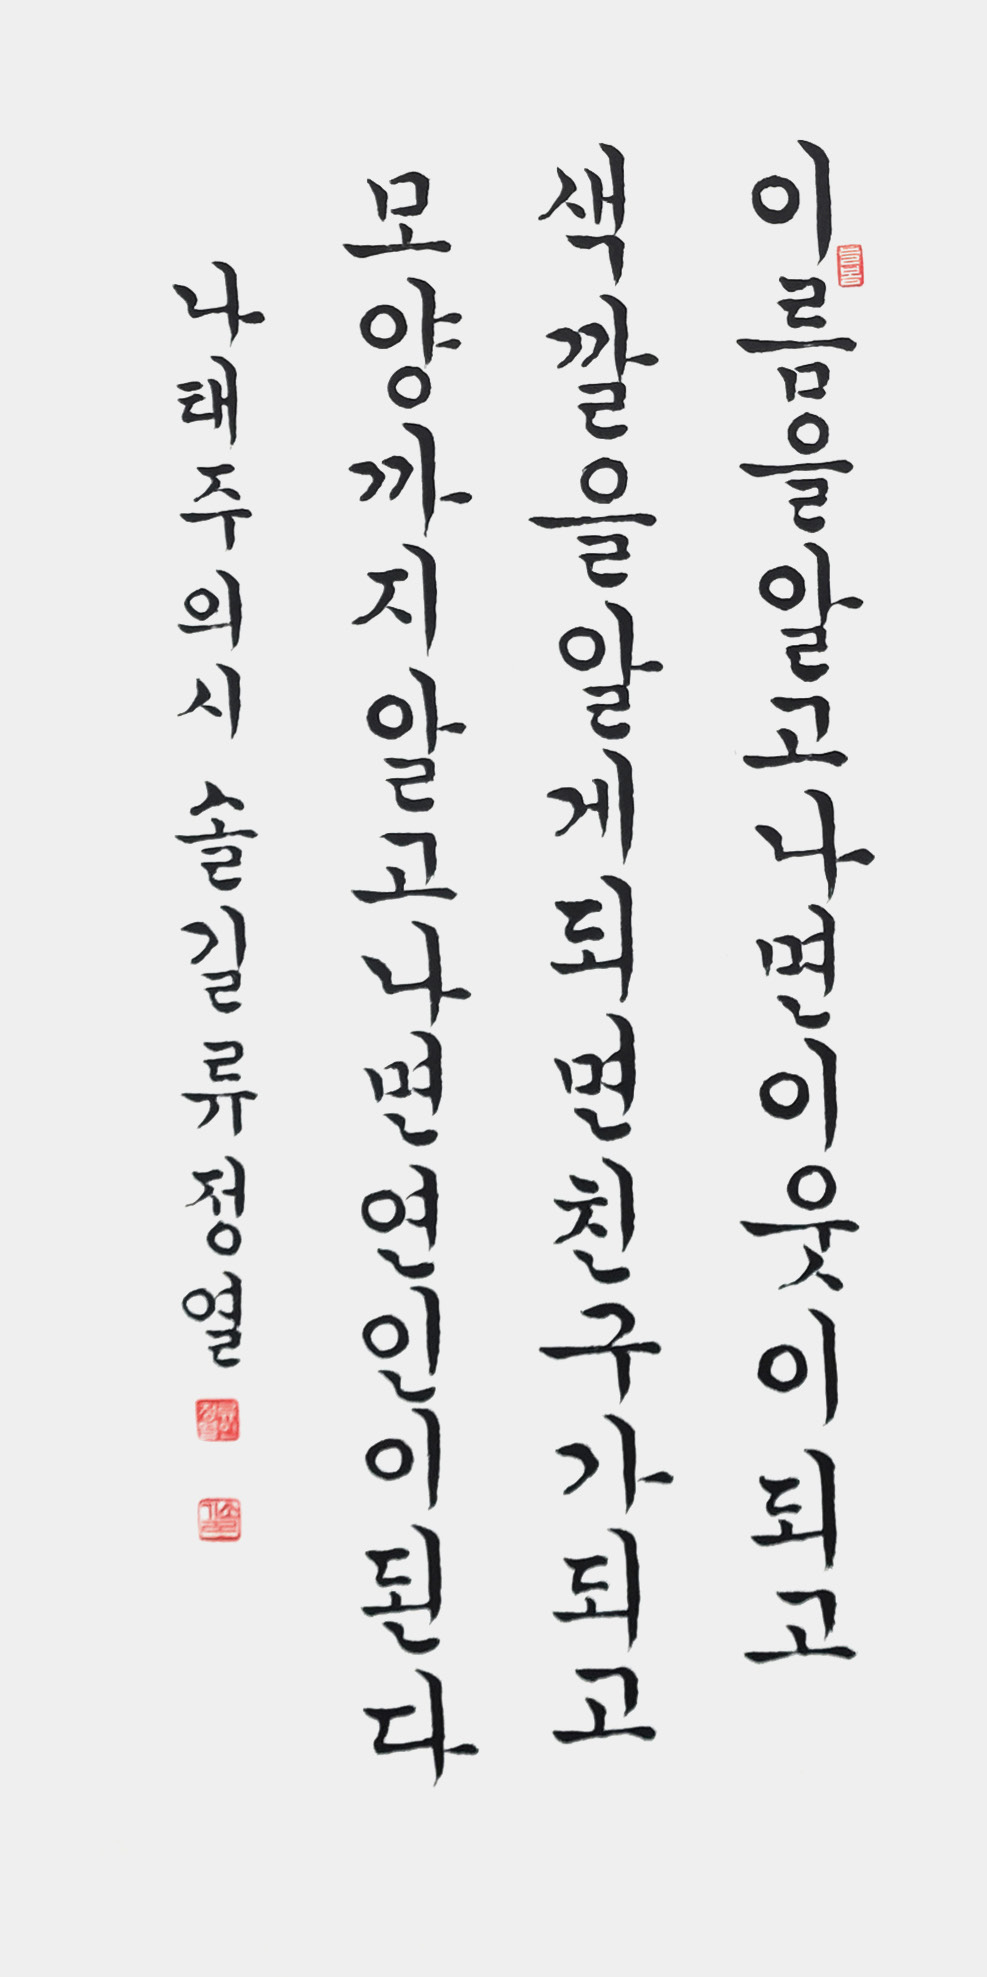 이름을알고나면이웃이되고
색깔을알게되면친구가되고
모양까지알고나면연인이된다
나태주의시 솔길류정열